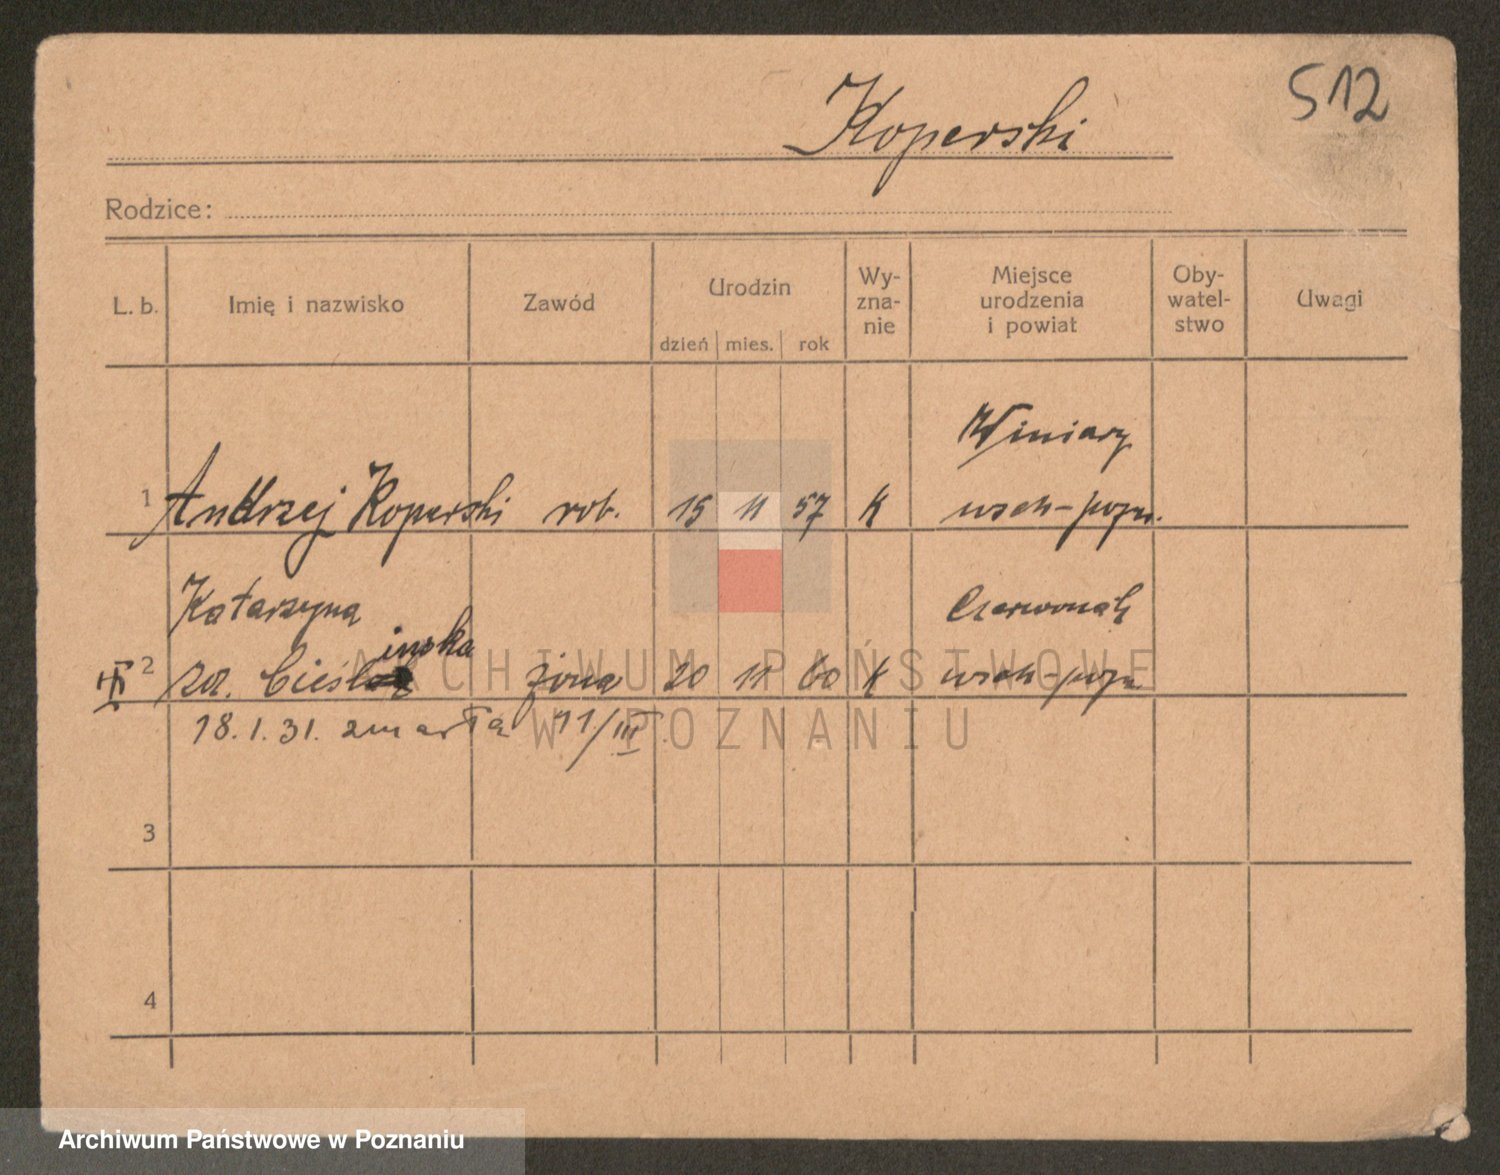 512
Koperski
Rodzice:
L. b.
Imię i nazwisko
Zawód
Urodzin
dzień mies. rok
Wy-
zna-
nie
Miejsce
urodzenia
i powiat
Oby-
watel-
stwo
Uwagi
Winiary
1 Andrzej Koperski rob. 15 11 57 K wsch-pozn.
Katarzyna Czerwonak
inska
2 zd. Cieśl żona 20 11 60 K wsch-pozn.
18.1.31. zmarła 11/III
3
4
ARCHIWUM PAŃSTWOWE
W POZNANIU
Archiwum Państwowe w Poznaniu